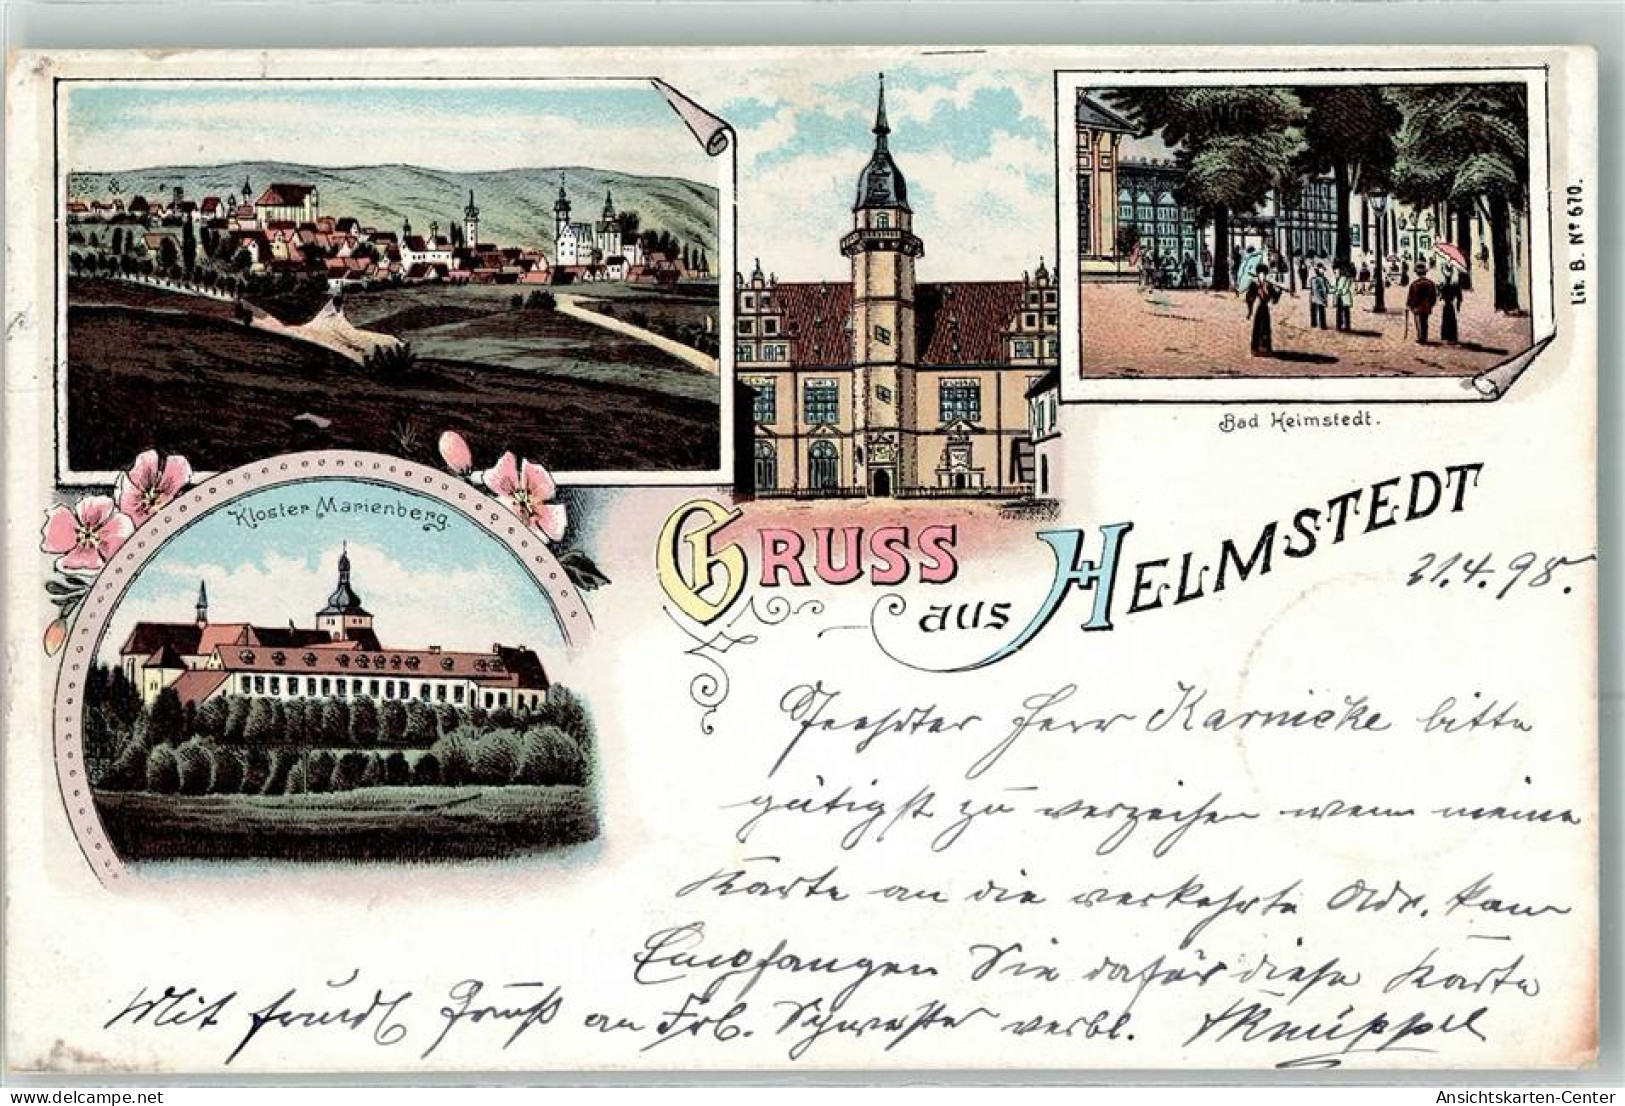 Lit. B. Nº 670.
Bad Helmstedt.
Kloster Marienberg.
GRUSS aus HELMSTEDT
21.4.98.
Geehrter Herr Karnicke bitte
gütigst zu verzeihen wenn meine
Karte an die verkehrte Adr. kam
Empfangen Sie dafür diese Karte
Mit freundl Gruß an Frl. Schwester verbl. Knüppel
delcampe.net
Ansichtskarten-Center